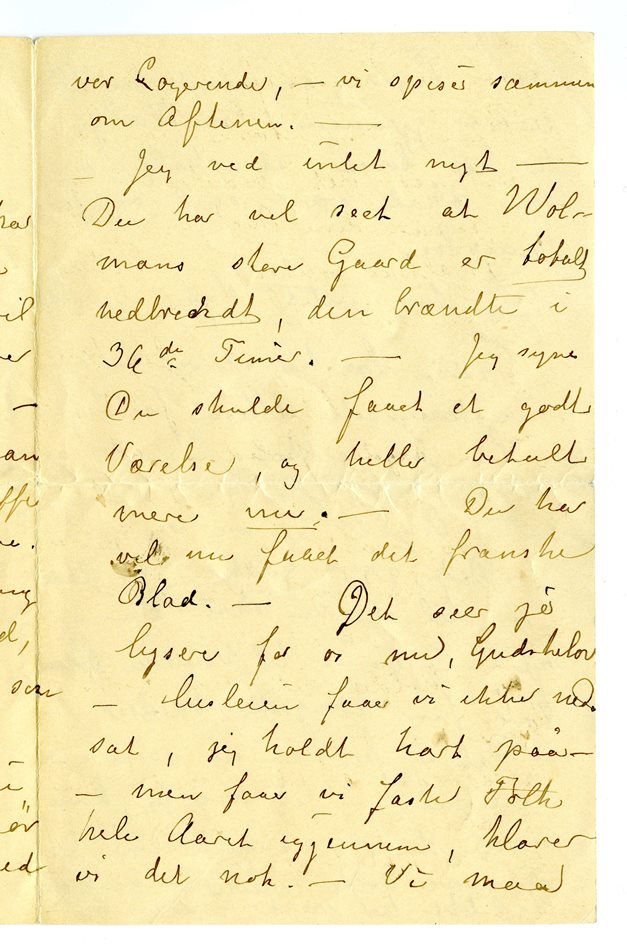 vor Logerende, – vi spiser sammen
om Aftenen. —
– Jeg ved intet nyt —
Du har vel seet at Wol-
mans store Gaard er totalt
nedbrændt, den brændte i
36 Timer. — Jeg synes
Du skulde faaet et godt
Værelse, og heller betalt
mere nu. — Du har
vel nu faaet det franske
Blad. — Det seer jo
lysere for os nu, Gudskelov
– Husleien faaer vi ikke ned-
sat, jeg holdt hart paa –
– men faaer vi faste Folk
hele Aaret igjennem, klarer
vi det nok. – Vi maa